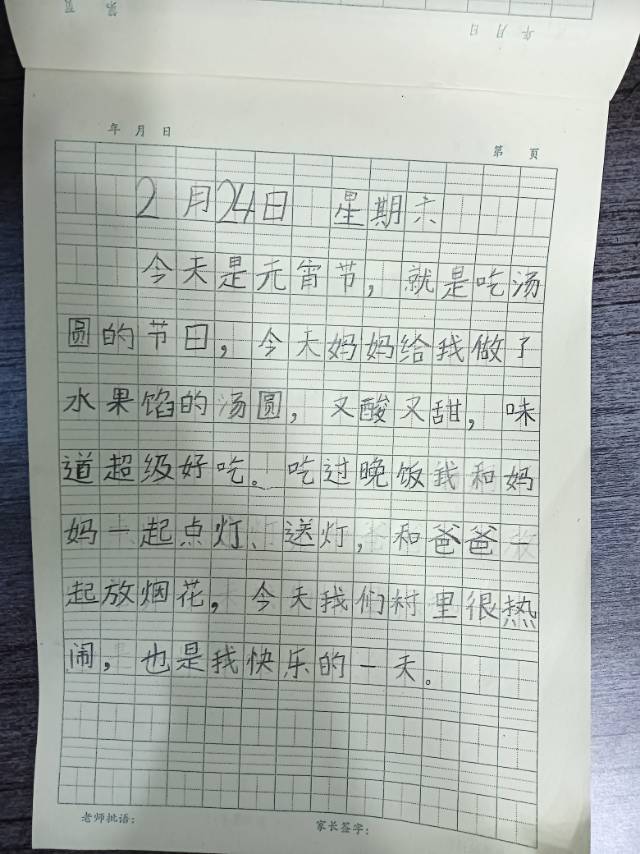 第 页
年 月 日
年 月 日
第 页
2月24日 星期六
今天是元宵节，就是吃汤
圆的节日，今天妈妈给我做了
水果馅的汤圆，又酸又甜，味
道超级好吃。吃过晚饭我和妈
妈一起点灯、送灯，和爸爸一
起放烟花，今天我们村里很热
闹，也是我快乐的一天。
老师批语：
家长签字：